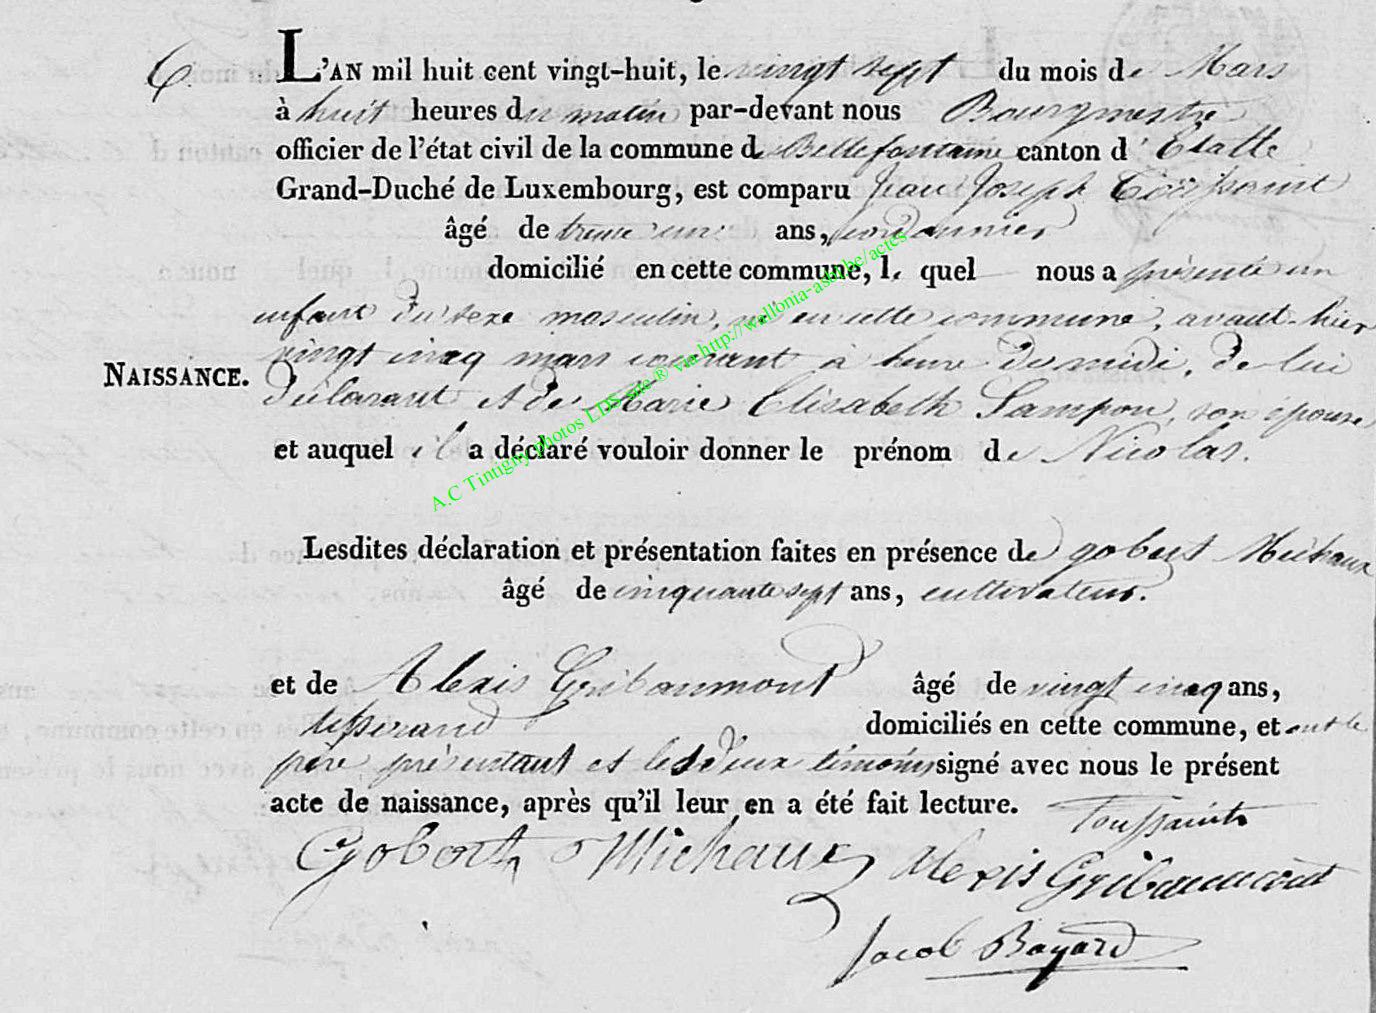 6.
L'AN mil huit cent vingt-huit, le vingt sept du mois de Mars
à huit heures du matin par-devant nous Bourgmestre
officier de l'état civil de la commune de Bellefontaine canton d'Etalle
Grand-Duché de Luxembourg, est comparu Jean Joseph Toussaint
âgé de trente un ans, cordonnier
domicilié en cette commune, le quel nous a présenté un
enfant du sexe masculin, né en cette commune, avant-hier
vingt cinq mars courant à heure de midi, de lui
NAISSANCE.
Déclarant et de Marie Elisabeth Lampon, son épouse
et auquel il a déclaré vouloir donner le prénom de Nicolas.
A.C Tintigny photos LDS site ® via http://wallonia-asbl.be/actes
Lesdites déclaration et présentation faites en présence de gobert Michaux
âgé de cinquante sept ans, cultivateur.
et de Alexis Gribaumont âgé de vingt cinq ans,
tisserand domiciliés en cette commune, et ont le
père présentant et les deux témoins signé avec nous le présent
acte de naissance, après qu'il leur en a été fait lecture. Toussaint
Gobert Michaux Alexis Gribaumont
Jacob Bayard